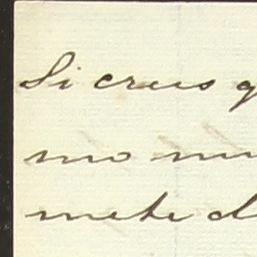 Si crees q
mo mu
mete d